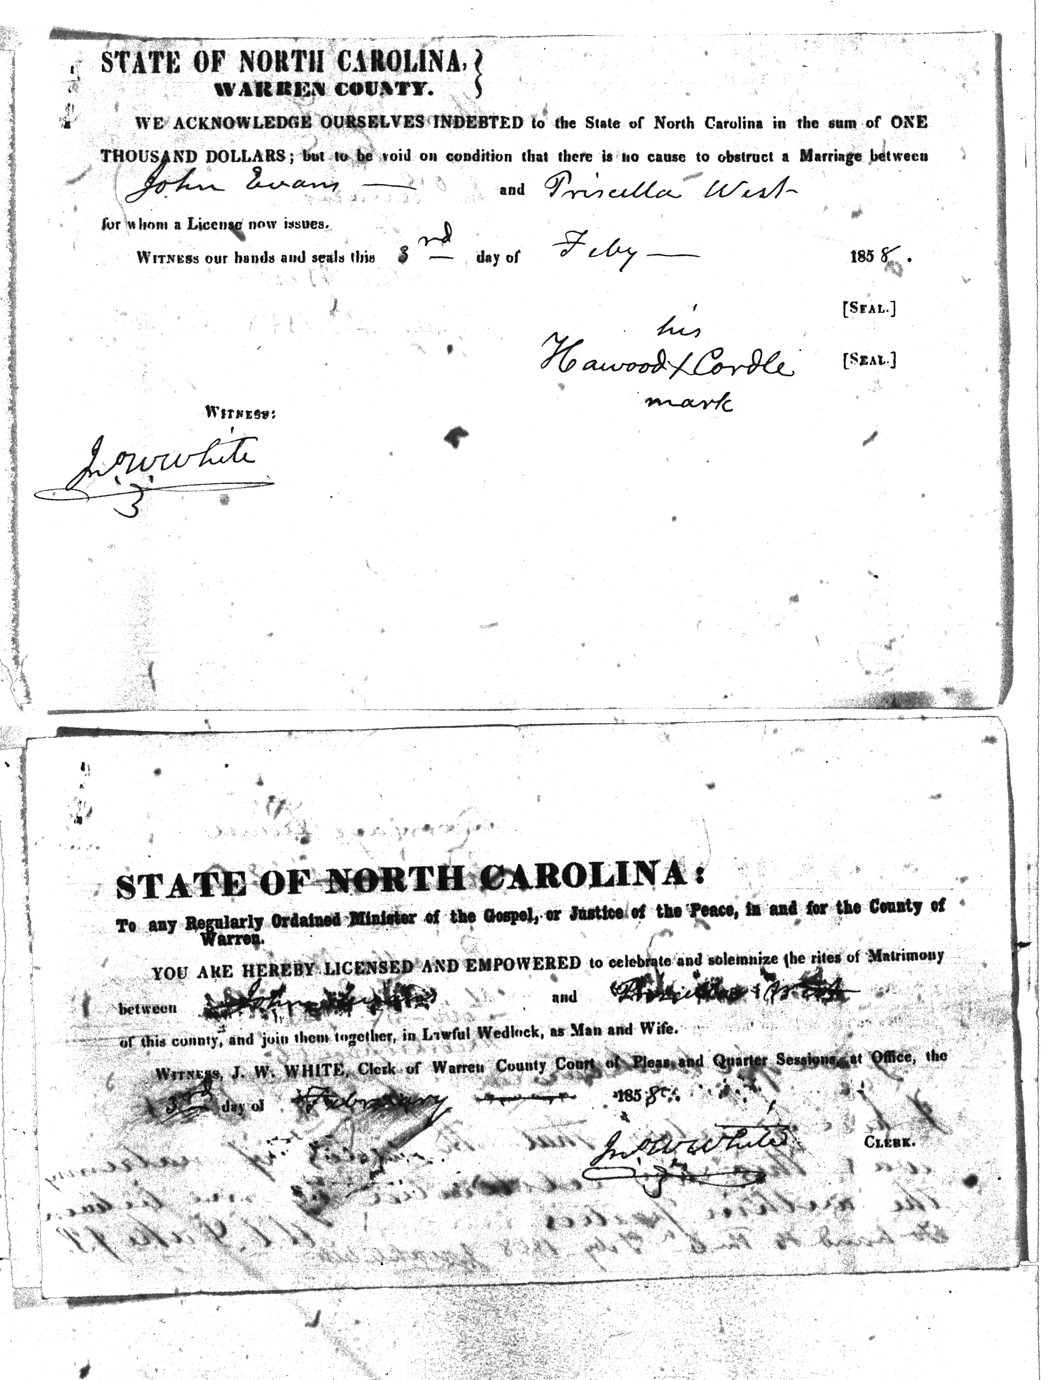 STATE OF NORTH CAROLINA,
WARREN COUNTY.
WE ACKNOWLEDGE OURSELVES INDEBTED to the State of North Carolina in the sum of ONE
THOUSAND DOLLARS; but to be void on condition that there is no cause to obstruct a Marriage between
John Evans — and Priscilla West
for whom a License now issues.
WITNESS our hands and seals this 3rd day of Feby — 1858.
[SEAL.]
his
Hawood X Cordle [SEAL.]
mark
WITNESS:
Jno. W. White
STATE OF NORTH CAROLINA:
To any Regularly Ordained Minister of the Gospel, or Justice of the Peace, in and for the County of
Warren.
YOU ARE HEREBY LICENSED AND EMPOWERED to celebrate and solemnize the rites of Matrimony
between John Evans and Priscilla West
of this county, and join them together, in Lawful Wedlock, as Man and Wife.
WITNESS, J. W. WHITE, Clerk of Warren County Court of Pleas and Quarter Sessions, at Office, the
3rd day of February 1858.
Jno. W. White CLERK.